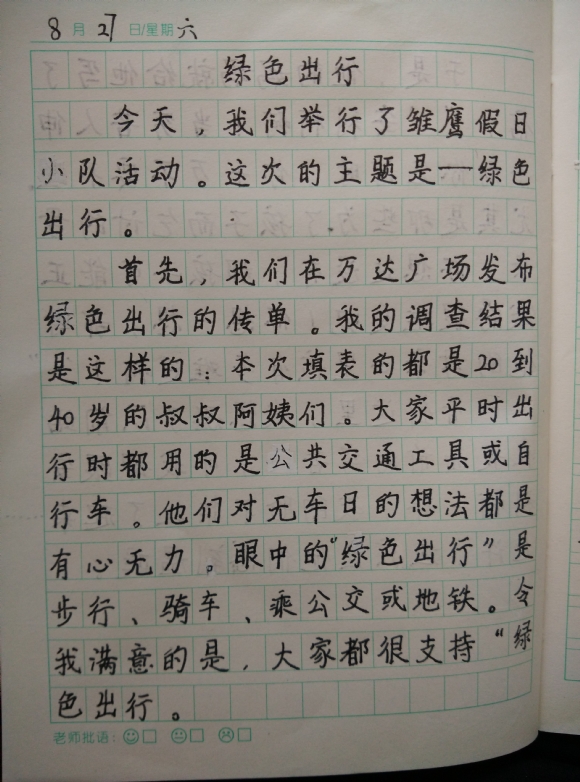 8月27日/星期六
绿色出行
今天，我们举行了雏鹰假日
小队活动。这次的主题是——绿色
出行。
首先，我们在万达广场发布
绿色出行的传单。我的调查结果
是这样的：本次填表的都是20到
40岁的叔叔阿姨们。大家平时出
行时都用的是公共交通工具或自
行车。他们对无车日的想法都是
有心无力。眼中的“绿色出行”是
步行、骑车、乘公交或地铁。令
我满意的是，大家都很支持“绿
色出行。
老师批语：